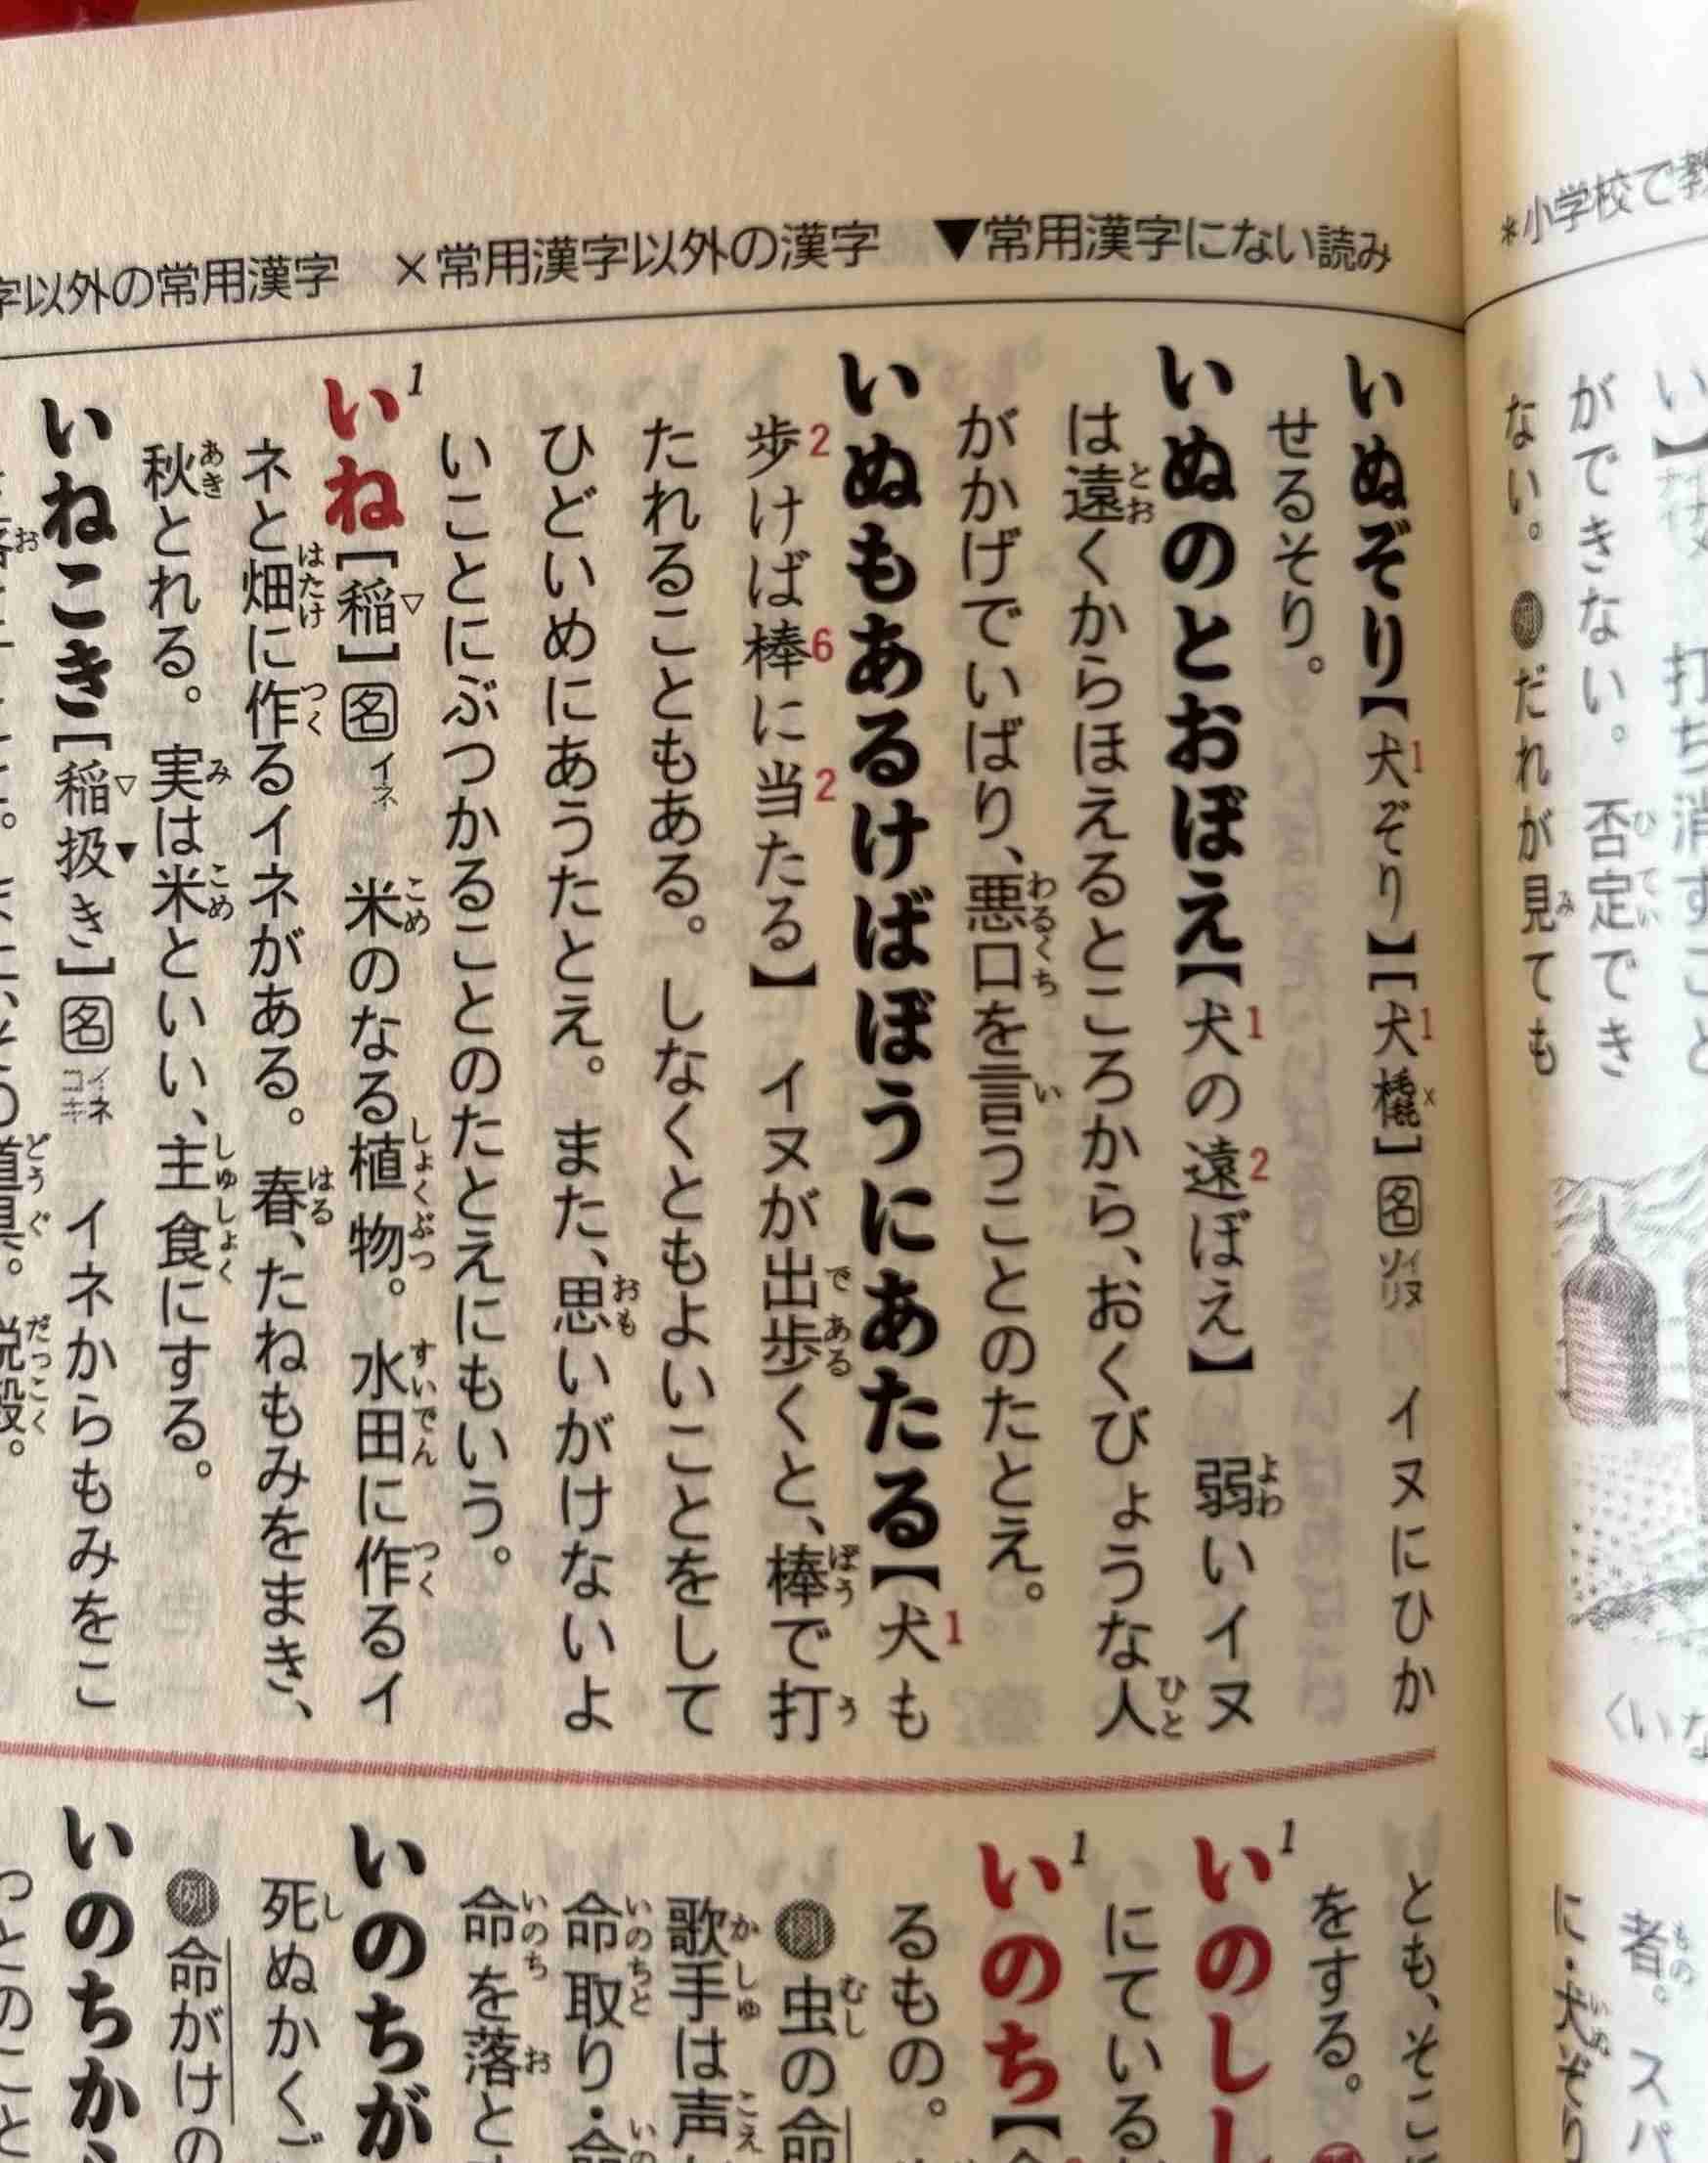 字以外の常用漢字　×常用漢字以外の漢字　▼常用漢字にない読み
*小学校で教
ができない。否定でき
ない。例だれが見ても
いぬぞり【犬ぞり】[犬橇]名イヌゾリ　イヌにひか
せるそり。
いぬのとおぼえ【犬の遠ぼえ】　弱いイヌ
は遠くからほえるところから、おくびょうな人
がかげでいばり、悪口を言うことのたとえ。
いぬもあるけばぼうにあたる【犬も
歩けば棒に当たる】　イヌが出歩くと、棒で打
たれることもある。しなくともよいことをして
ひどいめにあうたとえ。また、思いがけないよ
いことにぶつかることのたとえにもいう。
いね[稲]名イネ　米のなる植物。水田に作るイ
ネと畑に作るイネがある。春、たねもみをまき、
秋とれる。実は米といい、主食にする。
いねこき[稲扱き]名イネコキ　イネからもみをこ
道具。脱穀。
とも、そこ
をする。
いのしし
にている
いのち【
るもの。
例虫の命
歌手は声
命取り・命
命を落と
いのちが
死ぬかくご
例命がけの
いのちか
っとのこと
者。スパ
に・犬ぞり